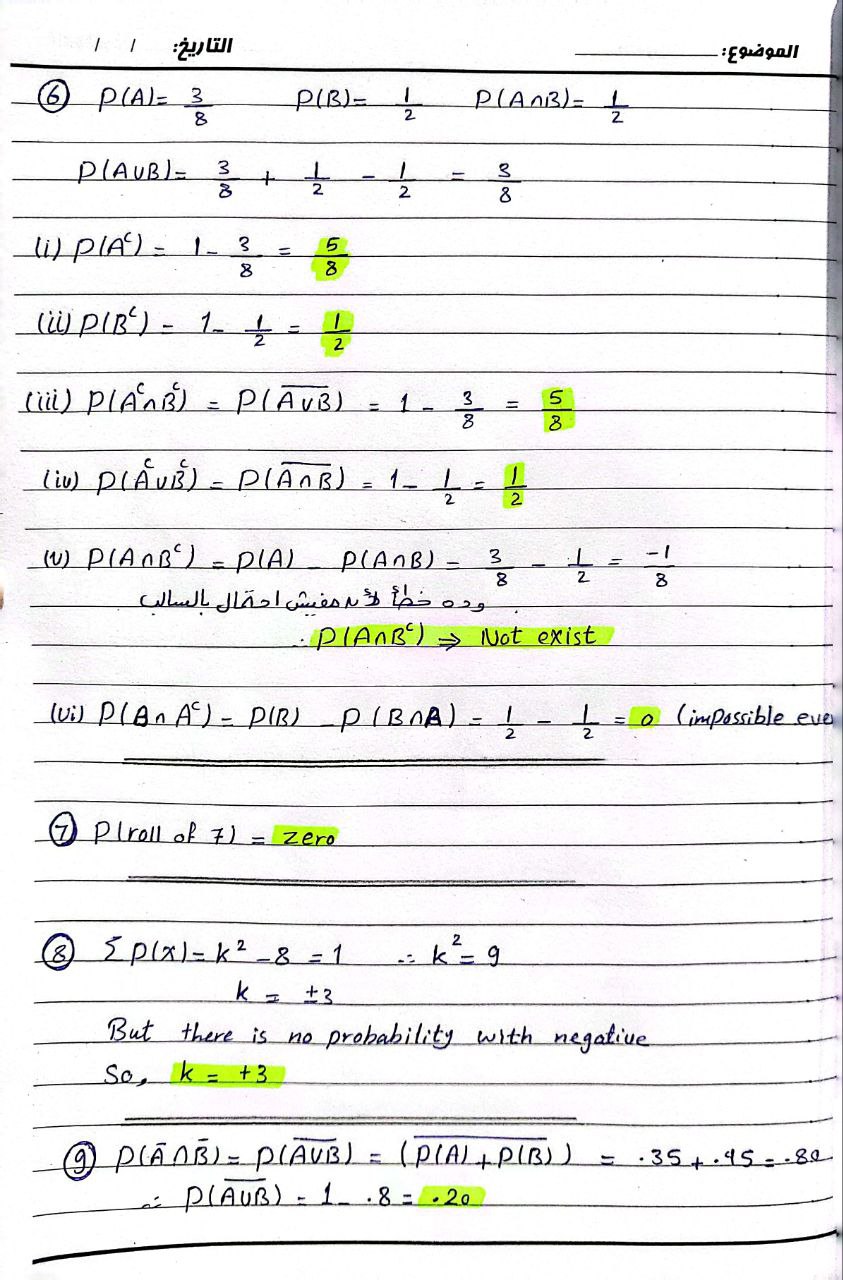 الموضوع: التاريخ: / /
⑥ P(A)= 3/8 P(B)= 1/2 P(A∩B)= 1/2
P(A∪B)= 3/8 + 1/2 - 1/2 = 3/8
(i) P(Aᶜ) = 1 - 3/8 = 5/8
(ii) P(Bᶜ) = 1 - 1/2 = 1/2
(iii) P(Aᶜ∩Bᶜ) = P(A̅ ̅∪̅ ̅B̅) = 1 - 3/8 = 5/8
(iv) P(Aᶜ∪Bᶜ) = P(A̅ ̅∩̅ ̅B̅) = 1 - 1/2 = 1/2
(v) P(A∩Bᶜ) = P(A) - P(A∩B) = 3/8 - 1/2 = -1/8
وده خطأ لأنه مفيش احتمال بالسالب
∴ P(A∩Bᶜ) ⇒ Not exist
(vi) P(B∩Aᶜ) = P(B) - P(B∩A) = 1/2 - 1/2 = 0 (impossible eve
⑦ P(roll of 7) = zero
⑧ Σ P(x) = k² - 8 = 1 ∴ k² = 9
k = ±3
But there is no probability with negative
So, k = +3
⑨ P(A̅∩B̅) = P(A̅∪̅B̅) = (P̅(̅A̅)̅ ̅+̅ ̅P̅(̅B̅)̅) = .35 + .45 = .80
∴ P(A̅∪̅B̅) = 1 - .8 = .20